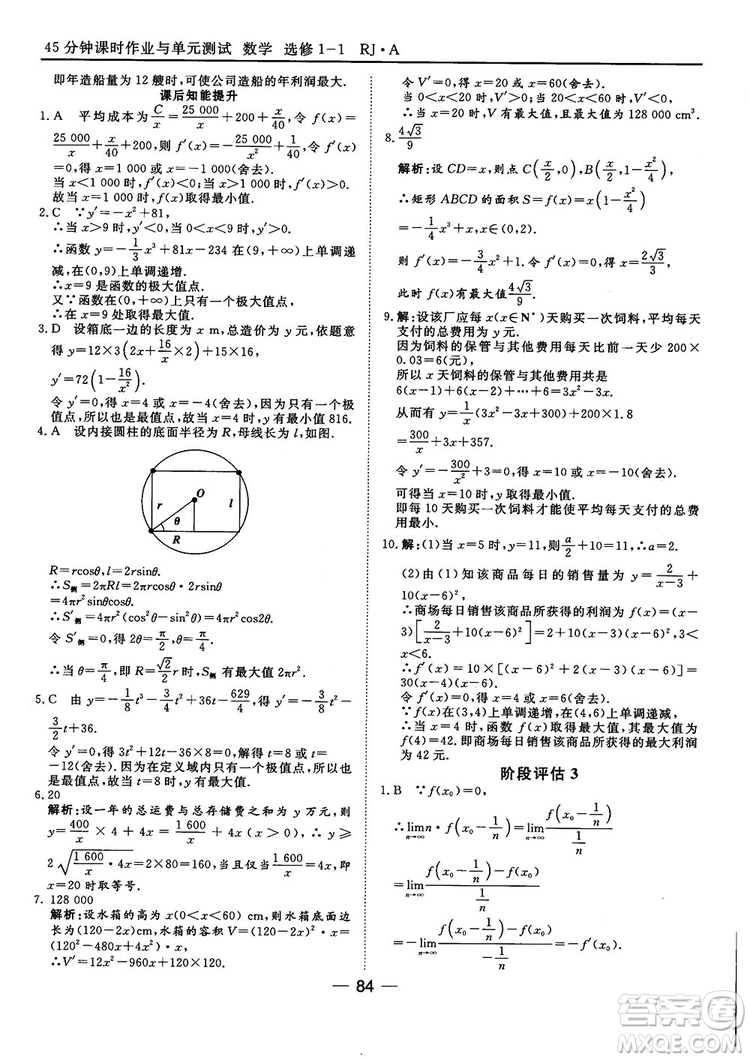 45分钟课时作业与单元测试 数学 选修1-1 RJ·A
即年造船量为12艘时,可使公司造船的年利润最大.
课后知能提升
1. A 平均成本为C/x=25 000/x+200+x/40,令f(x)=
25 000/x+x/40+200,f′(x)=-25 000/x²+1/40,令f′(x)
=0,得x=1 000或x=-1 000(舍去).
当x<1 000时,f′(x)<0;当x>1 000时,f′(x)>0.
故当x=1 000时,f(x)取得最小值.
2. C ∵y′=-x²+81,
∴当x>9时,y′<0,当0<x<9时,y′>0,
∴函数y=-1/3x³+81x-234在(9,+∞)上单调递
减,在(0,9)上单调递增.
∴x=9是函数的极大值点.
又∵函数在(0,+∞)上只有一个极大值点,
∴在x=9处取得最大值.
3. D 设箱底一边的长度为x m,总造价为y元,依题意
得y=12×3(2x+16/x×2)+12×20+15×16,
y′=72(1-16/x²).
令y′=0,得x=4或x=-4(舍去),因为只有一个极
值点,所以是最值点,故当x=4时,y有最小值816.
4. A 设内接圆柱的底面半径为R,母线长为l,如图.
O
r
θ
l
R
R=rcosθ,l=2rsinθ.
∴S侧=2πRl=2πrcosθ·2rsinθ
=4πr²sinθcosθ.
∴S′侧=4πr²(cos²θ-sin²θ)=4πr²cos2θ.
令S′侧=0,得θ=π/4,
∴当θ=π/4,即R=√2/2r时,S侧有最大值2πr².
5. C 由y=-1/8t³-3/4t²+36t-629/4,得y′=-3/8t²-
3/2t+36.
令y′=0,得3t²+12t-36×8=0,解得t=8或t=
-12(舍去).因为在定义域内只有一个极大值点,所
以当t=8时,y取最大值.
6. 20
解析:设一年的总运费与总存储费之和为y万元,则
y=400/x×4+4x=1 600/x+4x,(x>0).∴y⩾
2√(1 600/x·4x)=160,当且仅当1 600/x=4x,即x=
x=20时取等号.
7. 128 000
解析:设水箱的高为x(0<x<60) cm,则水箱底边长为
(120-2x) cm,水箱的容积V=(120-2x)²·x
=(120²-480x+4x²)·x
∴V′=12x²-960x+120².
令V′=0,得x=20或x=60(舍去).
当0<x<20时,V′>0,当20<x<60时,V′<0,
∴当x=20时,V有最大值,且最大值为128 000 cm³.
8. 4√3/9
解析:设CD=x,则点C(x/2,0),B(x/2,1-x²/4),
∴矩形ABCD的面积S=f(x)=x(1-x²/4)
=-1/4x³+x,(x>0).
则f′(x)=-3/4x²+1.令f′(x)=0,得x=2√3/3,
此时f(x)有最大值4√3/9.
9. 解:设该厂应每x(x∈N*)天购买一次饲料,平均每天
支付的总费用为y元.
因为饲料的保管与其他费用每天比前一天少200×
0.03=6(元),
所以x天饲料的保管与其他费用共是
6(x-1)+6(x-2)+…+6=3x²-3x(元).
从而有y=1/x(3x²-3x+300)+200×1.8
=300/x+3x+357.
令y′=-300/x²+3=0,得x=10或x=-10(舍去).
可得当x=10时,y取得最小值.
即每10天购买一次饲料才能使平均每天支付的总费
用最小.
10. 解:(1)当x=5时,y=11,则a/2+10=11,∴a=2.
(2)由(1)知该商品每日的销售量为y=2/(x-3)+
10(x-6)²,
∴商场每日销售该商品所获得的利润为f(x)=(x-
3)[2/(x-3)+10(x-6)²]=2+10(x-3)(x-6)²,3<
x<6.
∴f′(x)=10×[(x-6)²+2(x-3)(x-6)]=
30(x-4)(x-6).
令f′(x)=0,得x=4或x=6(舍去).
∵f(x)在(3,4)上单调递增,在(4,6)上单调递减,
∴当x=4时,函数f(x)取得最大值,且最大值为
f(4)=42.即商场每日销售该商品所获得的最大利润
为42元.
阶段评估3
1. B ∵f(x₀)=0,
∴lim n→∞ n·f(x₀-1/n)=lim n→∞ f(x₀-1/n)/(1/n)
=lim n→∞ [f(x₀-1/n)-f(x₀)]/(1/n)
=-lim n→∞ [f(x₀-1/n)-f(x₀)]/(-1/n)
84
作业帮
MXQE.COM